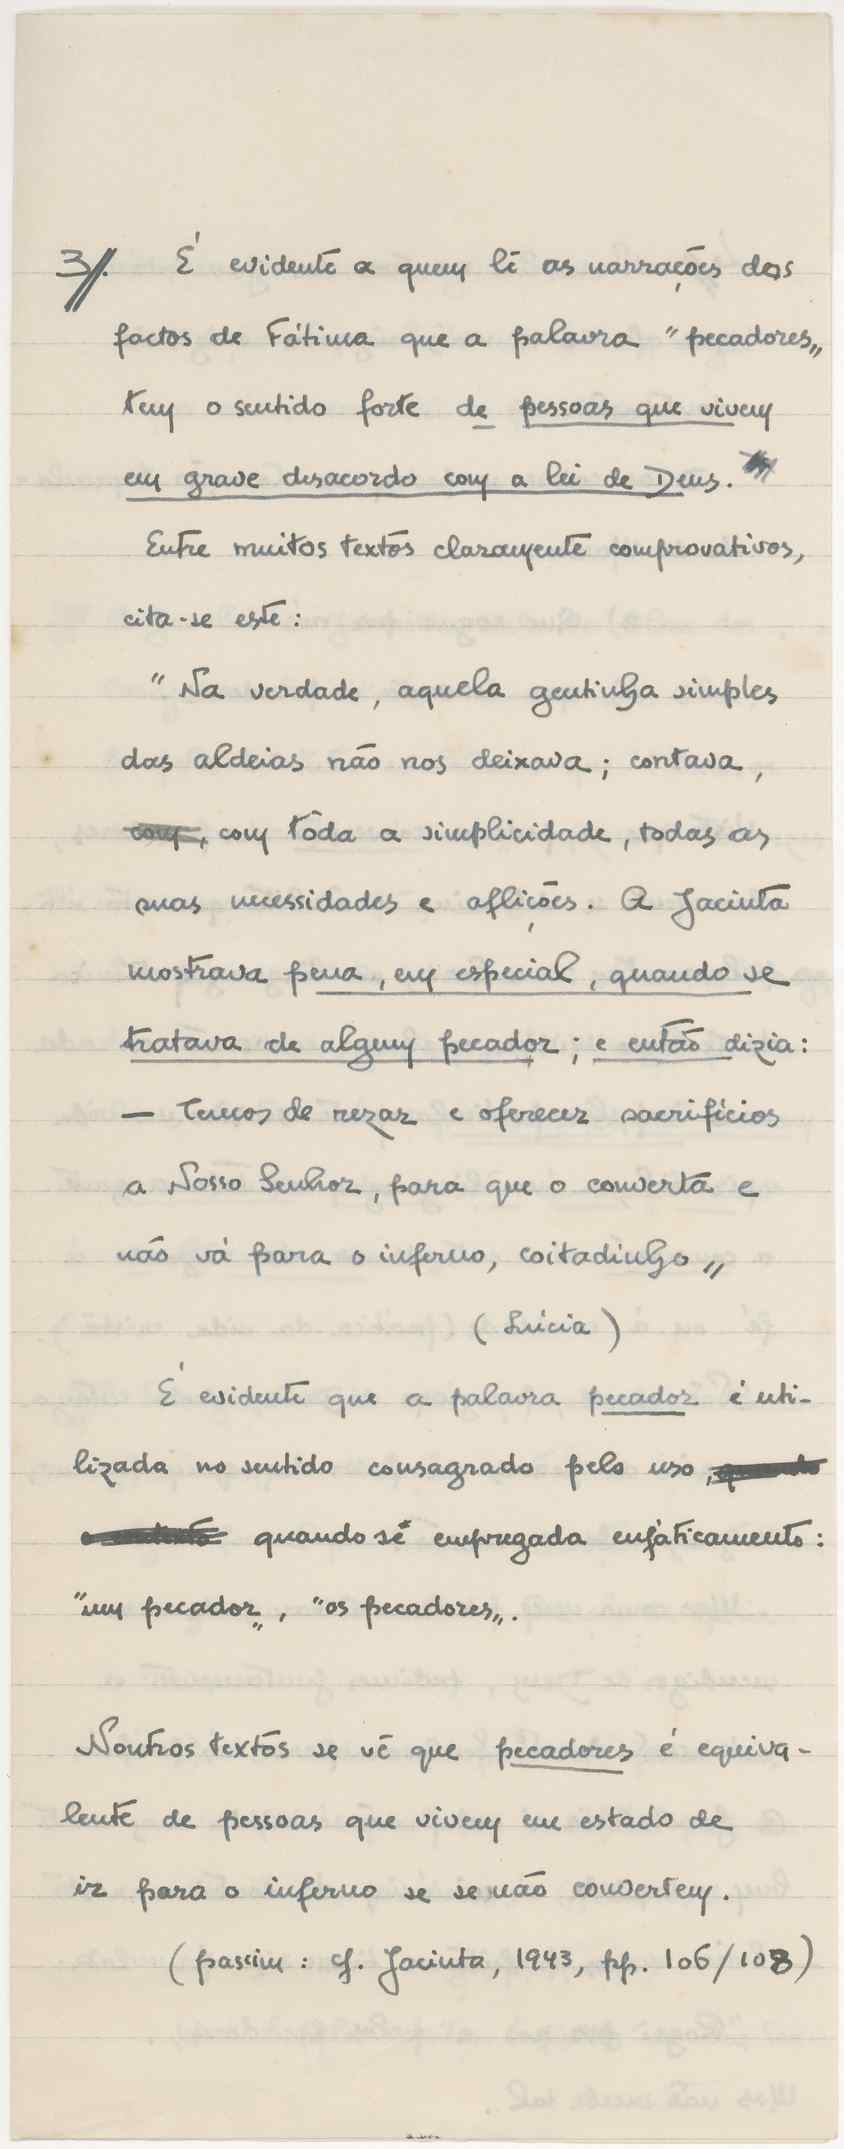 3/. É evidente a quem lê as narrações dos
factos de Fátima que a palavra "pecadores„
tem o sentido forte de pessoas que vivem
em grave desacordo com a lei de Deus.
Entre muitos textos claramente comprovativos,
cita-se este:
"Na verdade, aquela gentinha simples
das aldeias não nos deixava; contava,
com, com tôda a simplicidade, todas as
suas necessidades e aflições. A Jacinta
mostrava pena, em especial, quando se
tratava de algum pecador; e então dizia:
— Temos de rezar e oferecer sacrifícios
a Nosso Senhor, para que o converta e
não vá para o inferno, coitadinho„
(Lúcia)
É evidente que a palavra pecador é uti-
lizada no sentido consagrado pelo uso, quando
o contexto quando se empregada enfáticamente:
"um pecador„, "os pecadores„.
Noutros textos se vê que pecadores é equiva-
lente de pessoas que vivem em estado de
ir para o inferno se se não convertem.
(passim: cf. Jacinta, 1943, pp. 106/108)